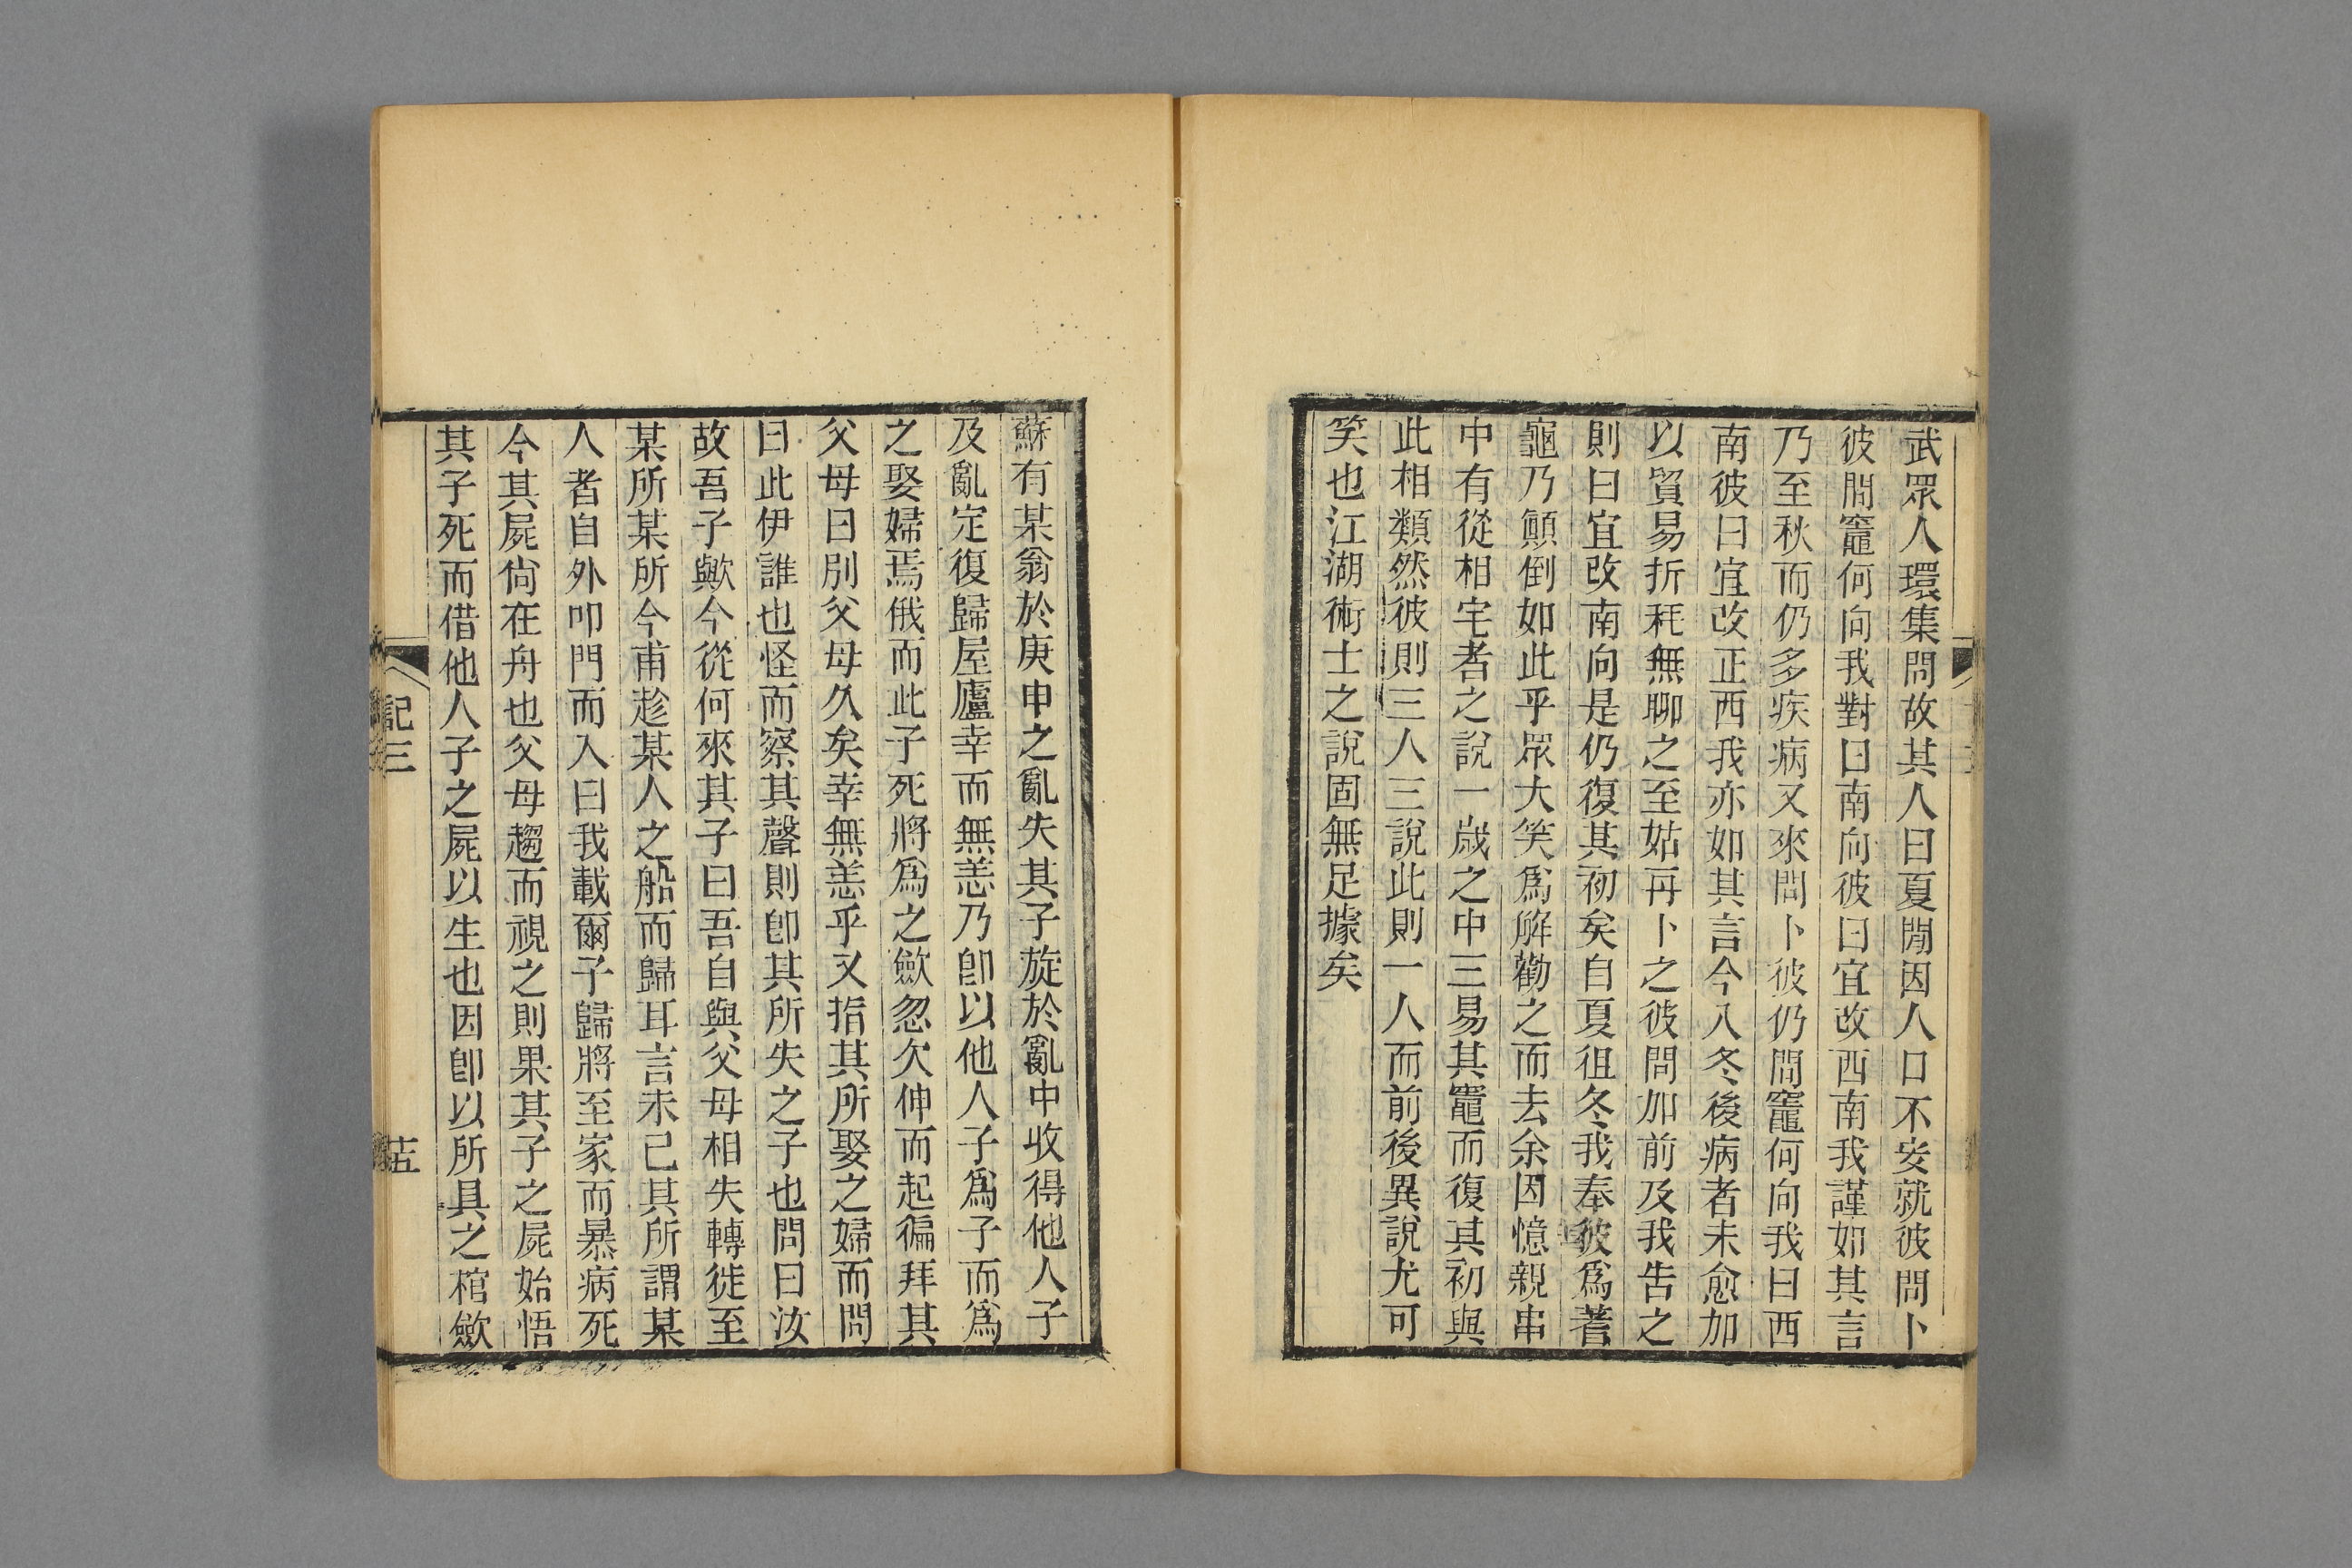 武眾人環集問故其人曰夏閒因人口不安就彼問卜
彼問竈何向我對曰南向彼曰宜改西南我謹如其言
乃至秋而仍多疾病又來問卜彼仍問竈何向我曰西
南彼曰宜改正西我亦如其言今入冬後病者未愈加
以貿易折耗無聊之至姑再卜之彼問如前及我告之
則曰宜改南向是仍復其初矣自夏徂冬我奉彼爲蓍
龜乃顛倒如此乎眾大笑爲解勸之而去余因憶親串
中有從相宅者之說一歲之中三易其竈而復其初與
此相類然彼則三人三說此則一人而前後異說尤可
笑也江湖術士之說固無足據矣
蘇有某翁於庚申之亂失其子旋於亂中收得他人子
及亂定復歸屋廬幸而無恙乃卽以他人子爲子而爲
之娶婦焉俄而此子死將爲之斂忽欠伸而起徧拜其
父母曰別父母久矣幸無恙乎又指其所娶之婦而問
曰此伊誰也怪而察其聲則卽其所失之子也問曰汝
故吾子歟今從何來其子曰吾自與父母相失轉徙至
某所某所今甫趁某人之船而歸耳言未已其所謂某
人者自外叩門而入曰我載爾子歸將至家而暴病死
今其屍尙在舟也父母趨而視之則果其子之屍始悟
其子死而借他人子之屍以生也因卽以所具之棺斂
記三